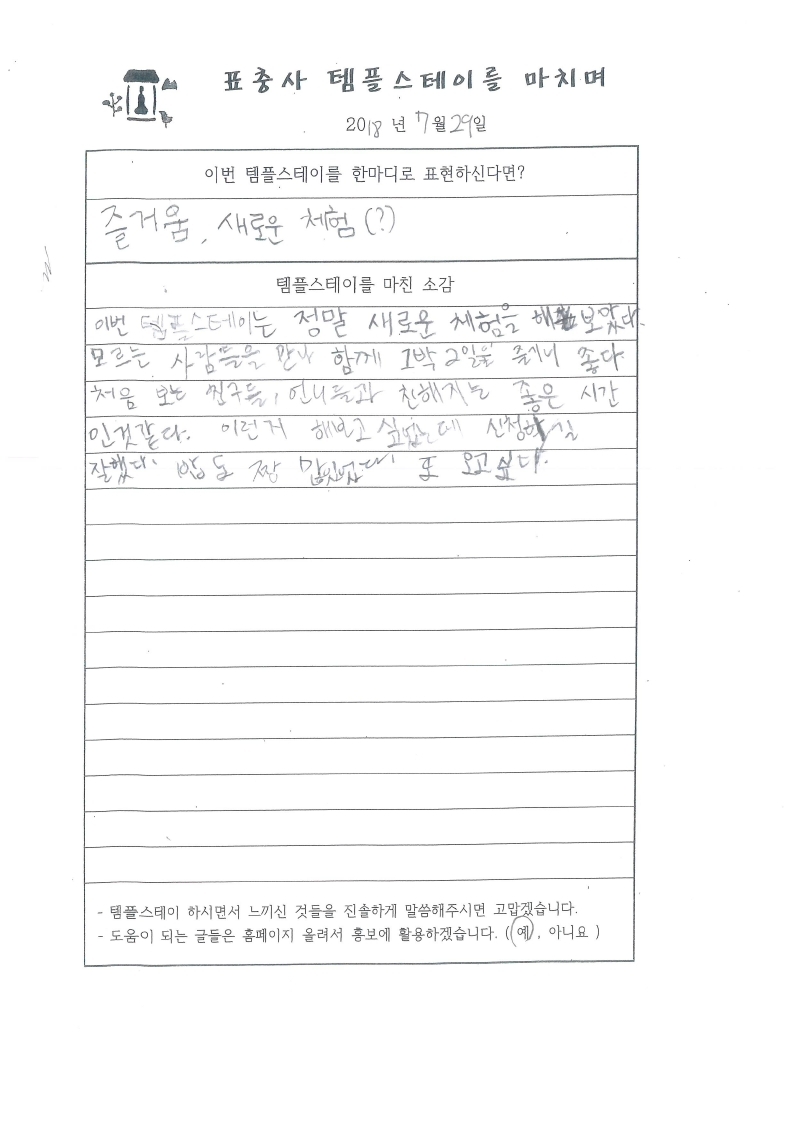 표충사 템플스테이를 마치며
2018년 7월 29일
이번 템플스테이를 한마디로 표현하신다면?
즐거움, 새로운 체험(?)
템플스테이를 마친 소감
이번 템플스테이는 정말 새로운 체험을 해 보았다.
모르는 사람들을 만나 함께 1박 2일을 좋다
처음 보는 친구들, 언니들과 친해지는 좋은 시간
인것같다. 이런거 해보고 싶었는데 신청하길
잘했다. 밥도 짱 맛있었다. 또 오고싶다.
- 템플스테이 하시면서 느끼신 것들을 진솔하게 말씀해주시면 고맙겠습니다.
- 도움이 되는 글들은 홈페이지 올려서 홍보에 활용하겠습니다. ( 예 , 아니요 )